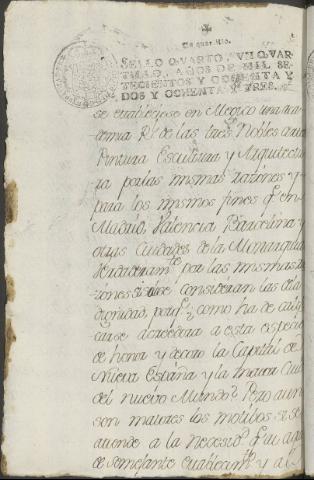 Un quartillo.
SELLO QVARTO, VN QVAR-
TILLO, AÑOS DE MIL SE-
TECIENTOS Y OCHENTA Y
DOS Y OCHENTA Y TRES.
se estableciese en Mexico una aca
demia Rl. de las tres Nobles artes
Pintura Escultura y Arquitectu
ra por las mismas razones y
para los mismos fines qe. en
Madrid, Valencia Barcelona y
otras Ciudades de la Monarquia
por las mismas ra
zones si se consideran las de la
dignidad, porqe. como ha de
carse acredora a esta especie
de honor y decoro la Capital de
Nueva España y la maior Ciud
del nuevo Mundo? Pero aun
son maiores los motibos si se
atiende a la necesid. qe. ai aqui
de semejante y a la